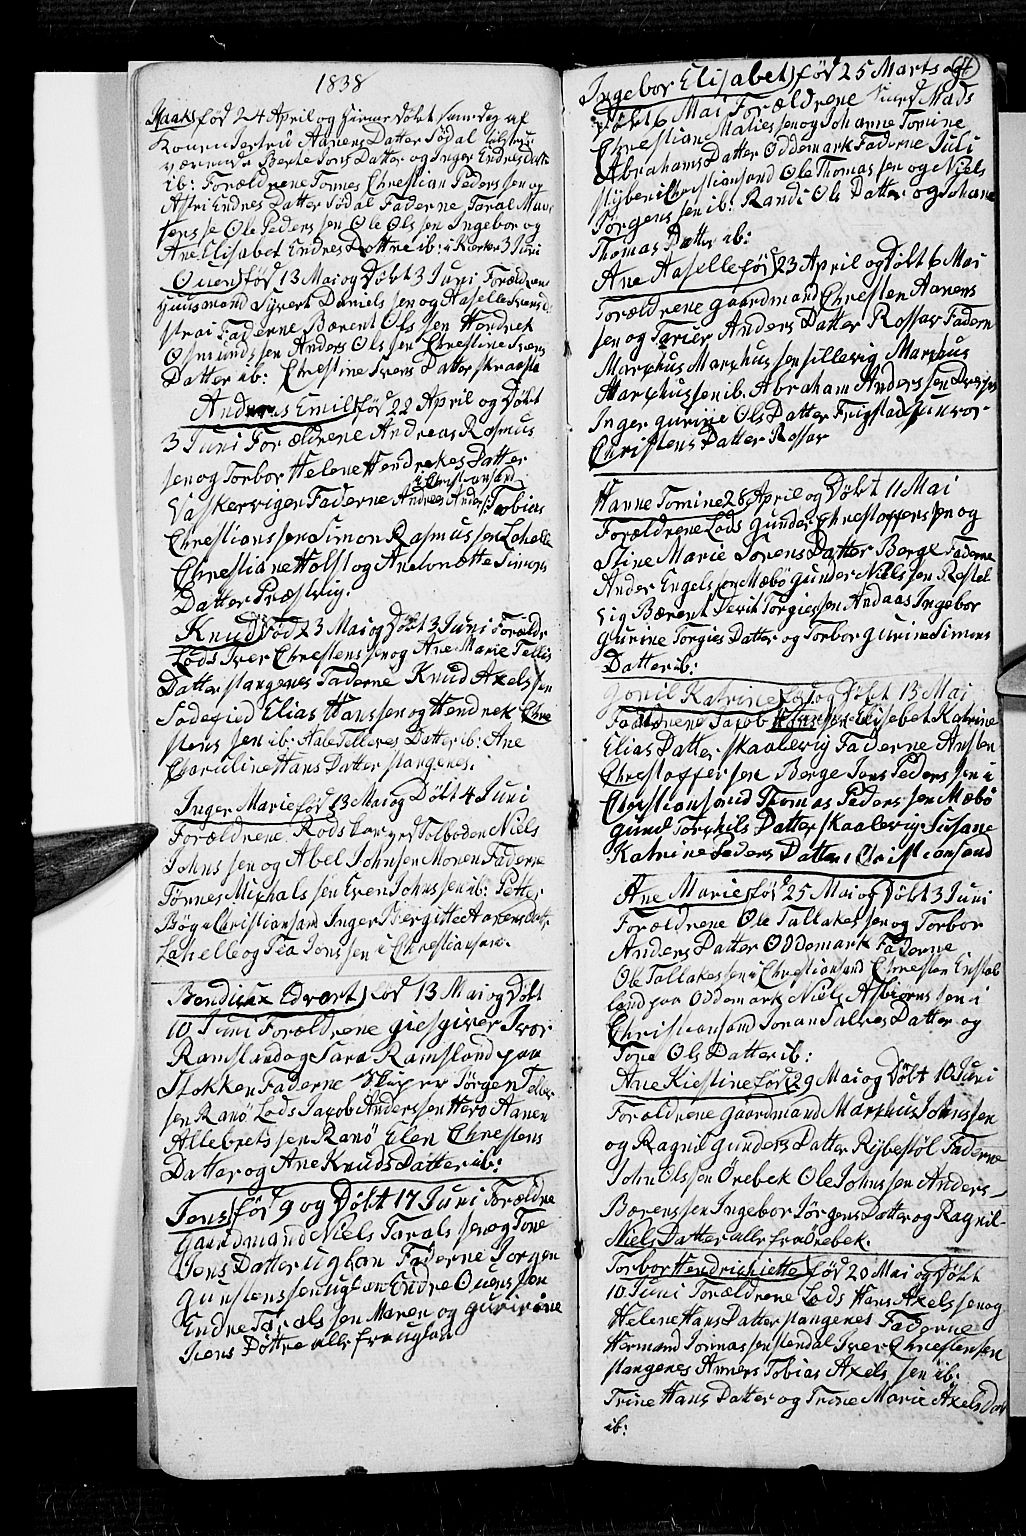 1838
Haaks født 24 April og hiemmedøbt samedag af
Konen Jertrud Aanens Datter Sødal tilstede
værende Berte Tors Datter og Inger Endresdatter
ib: Forældrene Tønnes Christian Pederssen og
Astri Endres Datter Sødal Faderne Toral
Ole Pederssen Ole Olssen Ingebor og
Ane Elisabet Endres Døttre ib: i Kerke 3 Juni
Ouen født 13 Mai og Døbt 3 Juni Forældrene
Huusmand Syvert Daniels sen og Aaselle Ivers d:
strai Faderne Bærent Ols sen Hendrek
Osmundssen Anders Ols sen Chrestine Ivers
Datter ib: Chrestine Ivers Datter
Andreas Emil født 22 April og Døbt
3 Juni Forældrene Andreas Rasmus
sen og Torbor Helene Hendrekes Datter
i Christiansand
Vaskervigen Faderne Andreas Anders: Tobias
Christianssen Simon Rasmussen Lahelle
Chrestiane Holst og Anetonette Simons
Datter Præstvig.
Knud Fød 3 Mai og Døbt 3 Juni Forældr
Lods Iver Chrestenssen og Ane Marie Tellis
Datter stangenes Faderne Knud Axelssen
Elias Hanssen og Hendrek Chre
stens sen ib: Aale Telleves Datter ib: Ane
Charuline Hans Datter stangenes.
Inger Marie fød 13 Mai og Døbt 4 Juni
Forældrene Rodskar ved Tolboden Niels
Johns sen og Abel Johnsen Moren Faderne
Tønnes Michals sen Even Johnssen ib: Petter
Bøg i Christiansand Inger Bergitte Aanensdatter
Lahelle og Tea Jonssen i Chrestiansand.
Bendikx Edvart fød 13 Mai og Døbt
10 Juni Forældrene giesgiver Ivor
Ramsland og Sara Ramsland paa
Stokken Faderne Skiper Jørgen Tobias
sen Ranø Lods Jacob Anderssen Herø Aanen
Allebrets sen Ranø Elen Chrestens
Datter og Ane Knuds Datter ib:
Jens fød 9 og Døbt 17 Juni Forældrene
Gaardmand Niels Toralssen og Tone
Jens Datter Uglan Faderne Jørgen
Gunstenssen Uglan Endre Ouens sen
Endre Toralssen Maren og Gurine
Jens Døttre alle fra Uglan
4
Ingebor Elisabet fød 25 Marts og
Døbt 6 Mai Forældrene Mads
Christian Matiessen og Johanne Tomine
Abrahams Datter Oddemark Faderne Juli
i Christiansand Ole Thomassen og Niels
Jørgenssen ib: Randi Ols Datter og Johane
Thomas Datter ib:
Ane Aaselle fød 23 April og Døbt 6 Mai
Forældrene Gaardmand Chresten Aanens
sen og Tarier Anders Datter Rossav Faderne
Marchus Marchussen sillevig Marchus
Marchussen ib. Abraham Anderssen
Inger gurine Ols Datter Frigstad
Christens Datter Rossav
Hanne Tomine 28 April og Døbt 11 Mai
Forældrene Lods Gunder Chrestofferssen og
Stine Marie Sørens Datter Berge Faderne
Ander Engelssen Mæbø Gunder Nielssen
vig Bærent Torgiessen Andaas Ingebor
gurine Torgies Datter og Torbor gurine Simons
Datter ib:
Gonil Katrine fød og Døbt 13 Mai
Faderne Jacob Elisebet Katrine
Elias Datter Skaalevig Faderne Ansten
Chrestoffersen Berge Jens Peders sen i
Christiansand Thomas Peders sen Mæbø
gund Torchils Datter Skaalevig Susane
Katrine Peders Datter i Christiansand
Ane Marie fød 25 Mai og Døbt 3 Juni
Forældrene Ole Tallakes sen og Torbor
Anders Datter Oddemark Faderne
Ole Tallakessen i Christiansand Chresten
land paa Oddemark Niels Asbiørns sen i
Christiansand Joran Salves Datter og
Tone Ols Datter ib:
Ane Kiestine fød 29 Mai og Døbt 10 Juni
Forældrene Gaardmand Marchus Johnssen
og Ragnil Gunders Datter Rybestøl Faderne
John Olssen Ørebek Ole Johnssen Anders
Bærenssen Ingebor Jørgens Datter og Ragnil
Niels Datter alle fra Ørebek.
Torbor Hendrichiette fød 20 Mai og Døbt
10 Juni Forældrene Lods Hans Axelssen og
Helene Hans Datter stangenes Faderne
Hermand Jonnassen stendal Iver Chrestensen
stangenes Anners Tobias Axels sen ib:
Trine Hans Datter og Trine Marie Axelsdatter
ib: